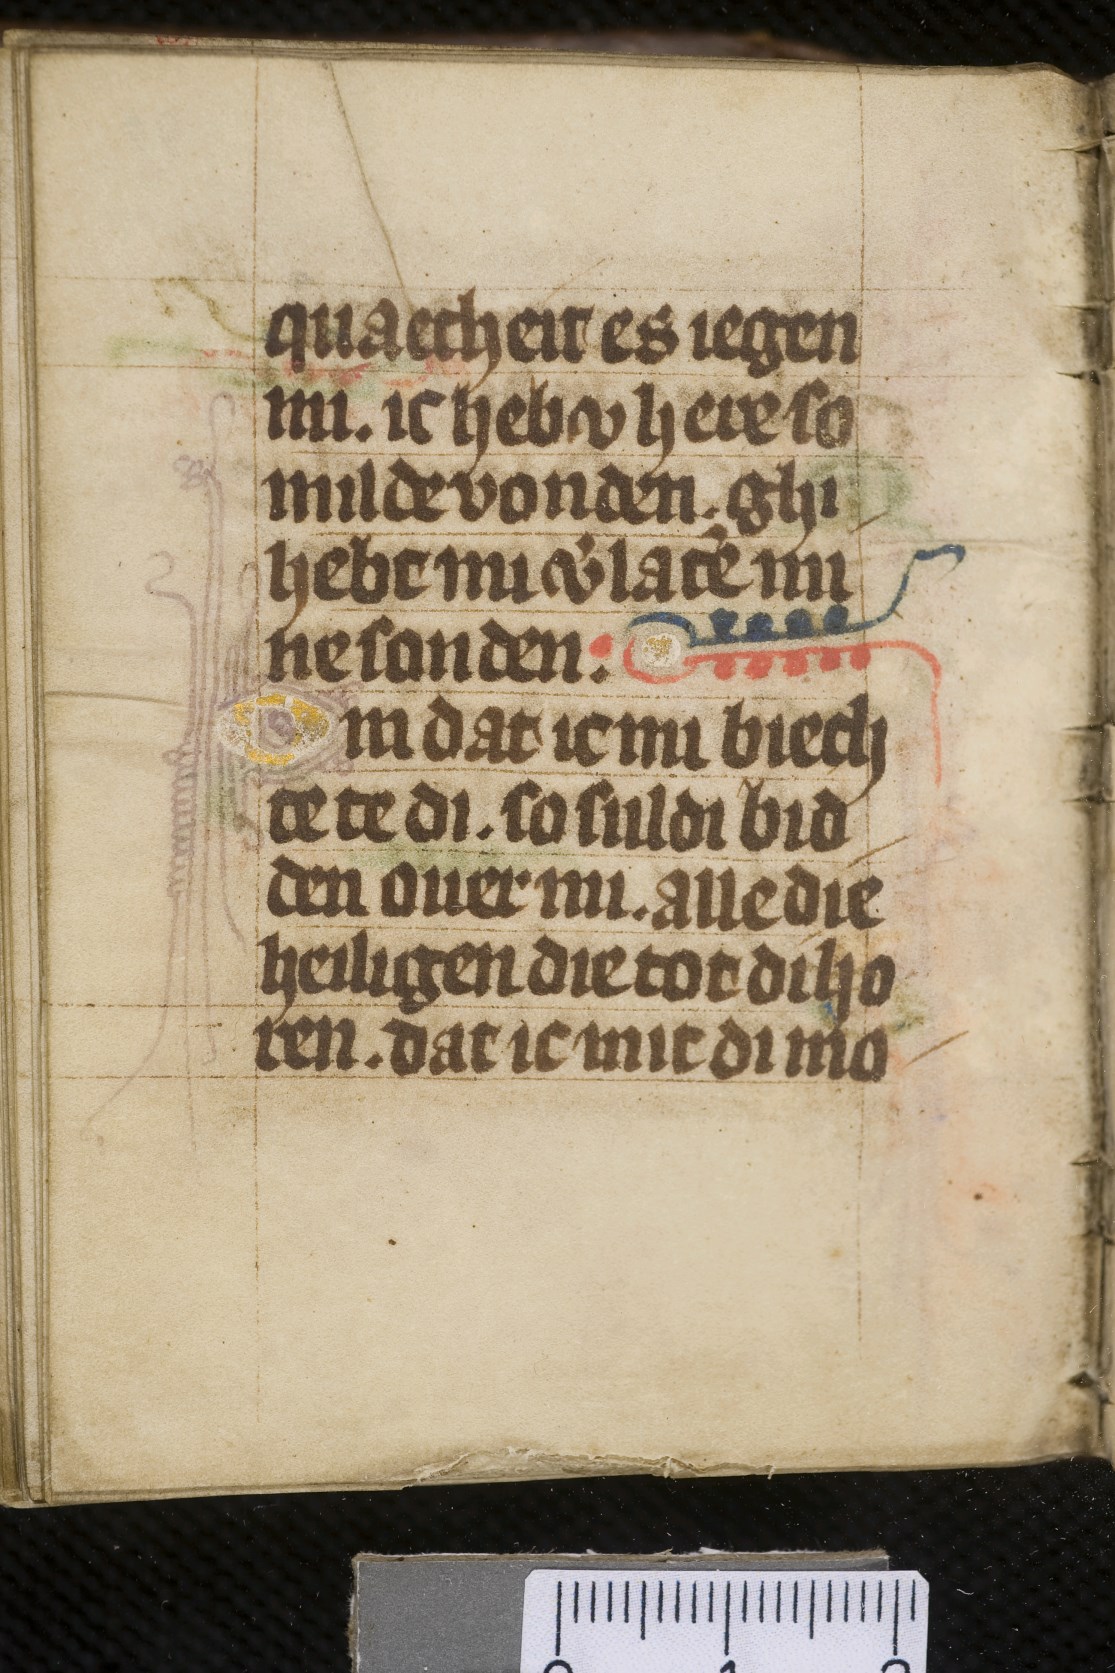 quaetheit es iegen
mi. ic heb v here so
milde vonden. ghi
hebt mi v̓latē mi
ne sonden:
Om dat ic mi biech
te te di. so suldi bid
den ouer mi. alle die
heiligen die tot di ho
ren. dat ic mit di mo
0 1 2